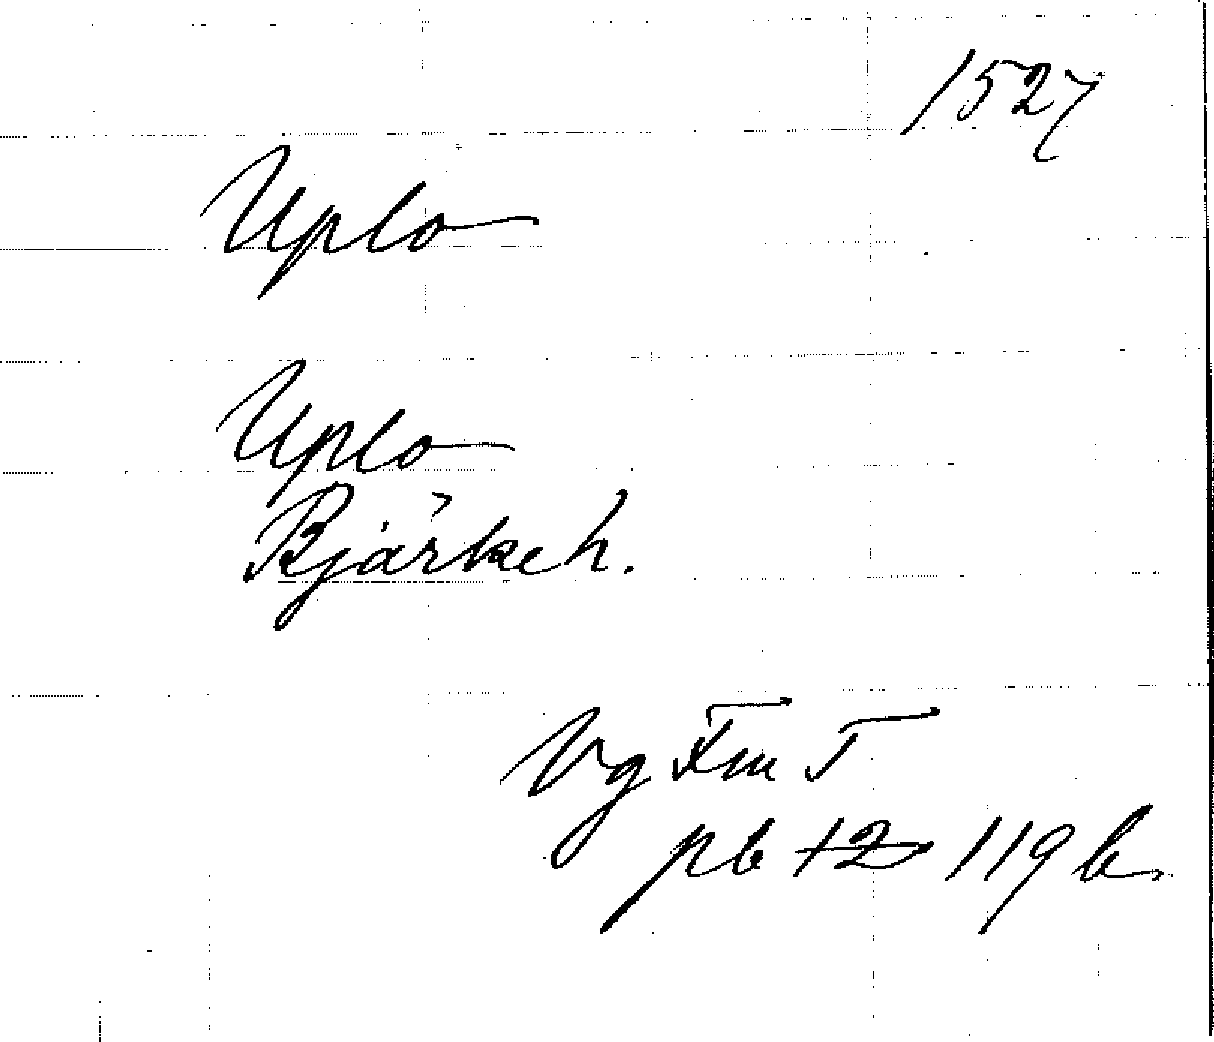 1527
Uplo
Uplo
Bjärkeh.
Vg Fm T
pb 12 119 b